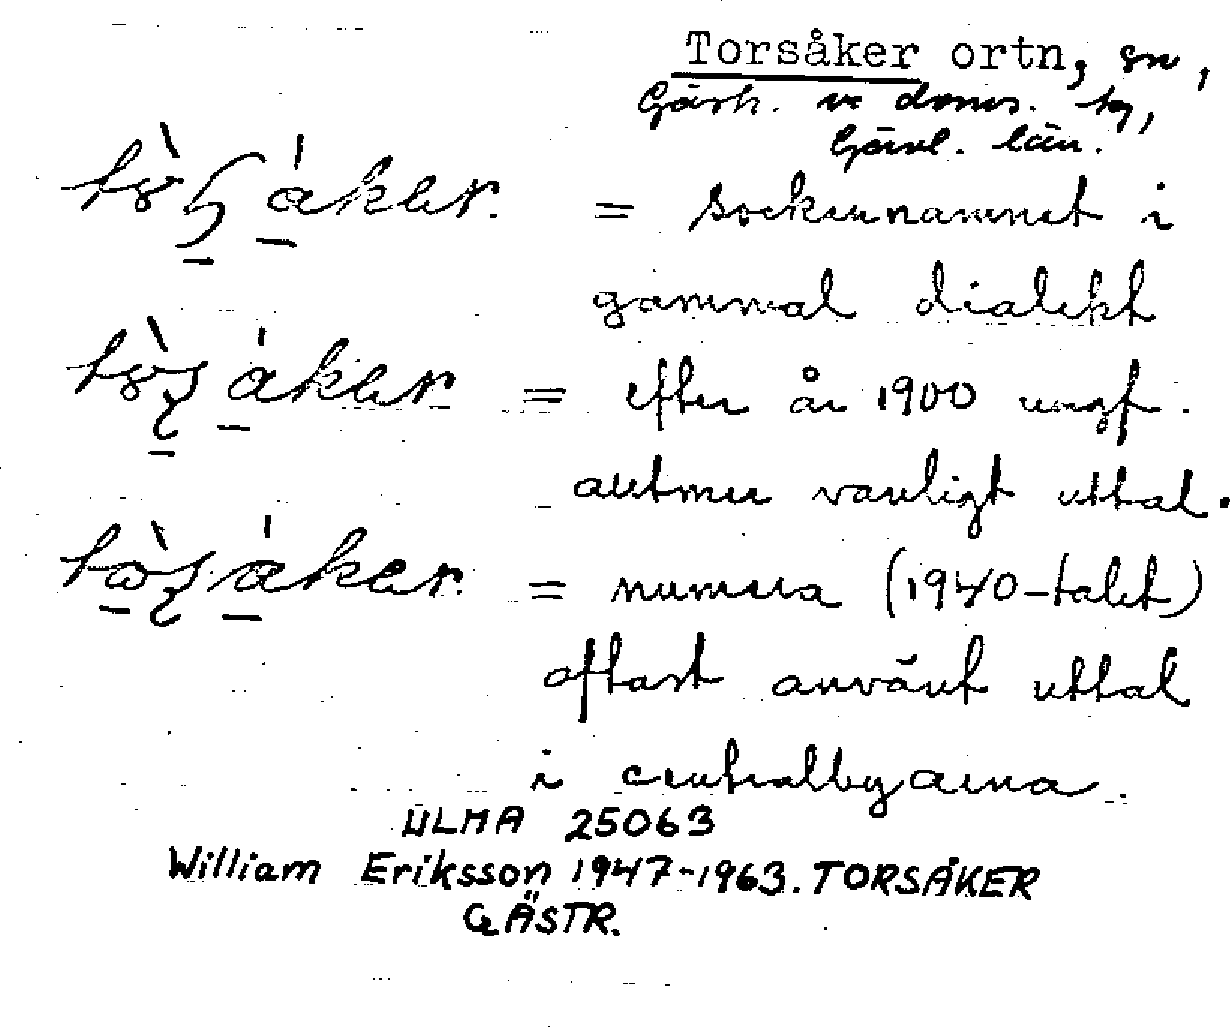 Torsåker ortn, sn,
Gästr. v. doms. tg,
Gävl. län.
= sockennamnet i
gammal dialekt
= efter år 1900 ungf.
alltmer vanligt uttal.
= numera (1940-talet)
oftast använt uttal
i centralbyarna.
ULMA 25063
William Eriksson 1947-1963. TORSÅKER
GÄSTR.